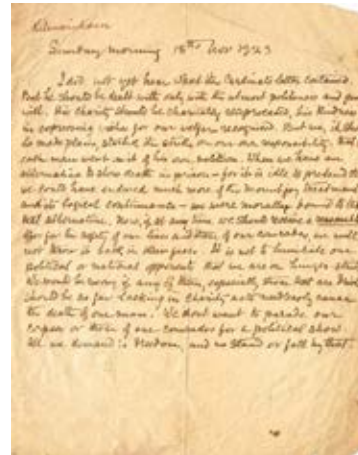 Kilmainham
Sunday morning 18th Nov 1923
I did not yet hear what the Cardinal's letter contained.
But he should be dealt with only with the utmost politeness and
with. His charity should be charitably reciprocated, his kindness
in expressing for our welfare recognised. But we, it should
be made plain, started the strike on our own responsibility. That
each man went on it of his own volition. When we have an
alternative to slow death in prison – for it is idle to pretend that
we could have endured much more of the Mountjoy treatment
and its logical continuance – we were morally bound to
that alternative. Now, if at any time we should receive a
offer for the safety of our lives and those of our comrades, we will
not throw it back in their faces. It is not to humiliate our
political or national opponents that we are on hunger strike
We would be sorry if any of them, especially those that are
should be so far lacking in charity as to needlessly cause
the death of one man. We dont want to parade our
corpses or those of our comrades for a political show.
All we demand is freedom, and we stand or fall by that.